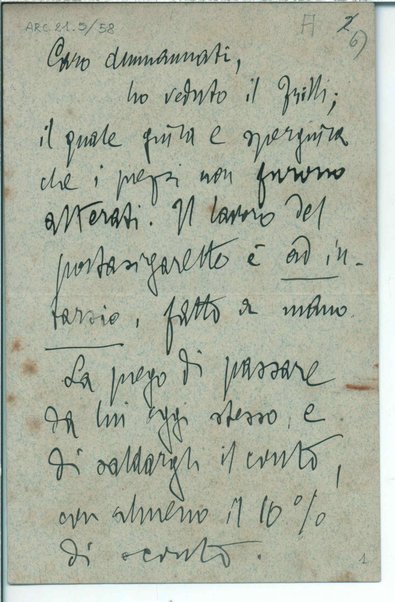 ARC 21.5/58
A 2
6)
Caro Ammannati,
ho veduto il Grilli;
il quale giura e spergiura
che i prezzi non furono
alterati. Il lavoro del
portasigarette è ad in-
tarsio, fatto a mano.
La prego di passare
da lui oggi stesso, e
di saldargli il conto,
con almeno il 10%
di sconto.
1